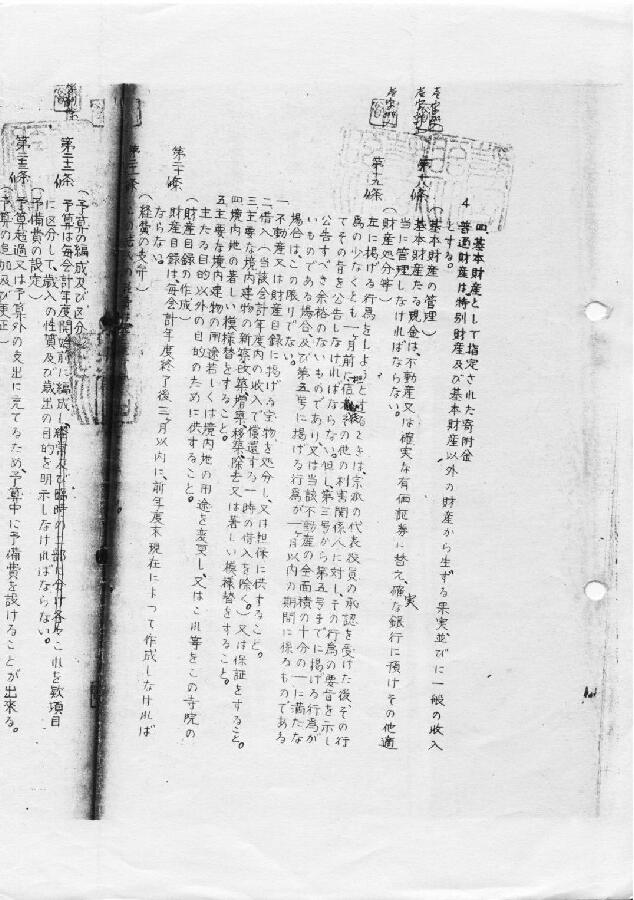 四、基本財産として指定された寄附金
4 普通財産は、特別財産及び基本財産以外の財産から生ずる果実並びに一般の収入
とする。
(基本財産の管理)
第十八條 基本財産たる現金は、不動産又は確実な有価証券に替え、確実な銀行に預けその他適
当に管理しなければならない。
(財産処分等)
第十九條 左に掲げる行為をしようとするときは、宗派の代表役員の承認を受けた後、その行
為の少なくとも一ヶ月前に信者その他の利害関係人に対し、その行為の要旨を示し
てその旨を公告しなければならない。但し、第三号から第五号までに掲げる行為が
公告すべき余裕のないものであり又は当該不動産の全面積の十分の一に満たな
いものである場合及び第五号に掲げる行為が一ヶ月以内の期間に係るものである
場合は、この限りでない。
一 不動産又は財産目録に掲げる宝物を処分し、又は担保に供すること。
二 借入(当該会計年度内の収入で償還する一時の借入を除く。)又は保証をすること。
三 主要な境内建物の新築、改築、増築、移築、除去又は著しい模様替をすること。
四 境内地の著しい模様替をすること。
五 主要な境内建物の用途若しくは境内地の用途を変更し、又はこれ等をこの寺院の
主たる目的以外の目的のために供すること。
(財産目録の作成)
第二十條 財産目録は、毎会計年度終了後三ヶ月以内に、前年度末現在によって作成しなければ
ならない。
(経費の支弁)
第二十一條
(予算の編成及び区分)
第二十二條 予算は毎会計年度開始前に編成し、経常及び臨時の二部に分け各々これを款項目
に区分して、歳入の性質及び歳出の目的を明示しなければならない。
(予備費の設定)
第二十三條 予算超過又は予算外の支出に充てるため、予算中に予備費を設けることが出来る。
(予算の追加及び更正)